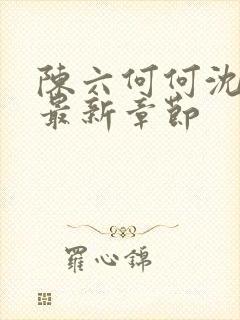 陳六何何沈
最新章節
羅心錦